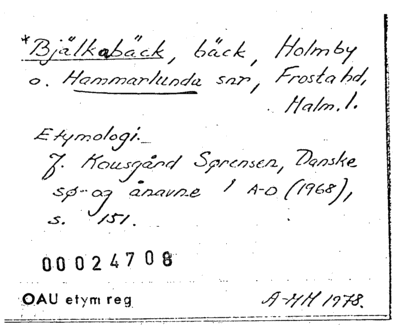 *Bjälkabäck, bäck, Holmby
o. Hammarlunda snr, Frosta hd,
Malm. l.
Etymologi.
J. Kousgård Sørensen, Danske
sø- og ånavne 1 A-D (1968),
s. 151.
00024708
OAU etym reg
A-MH 1978.